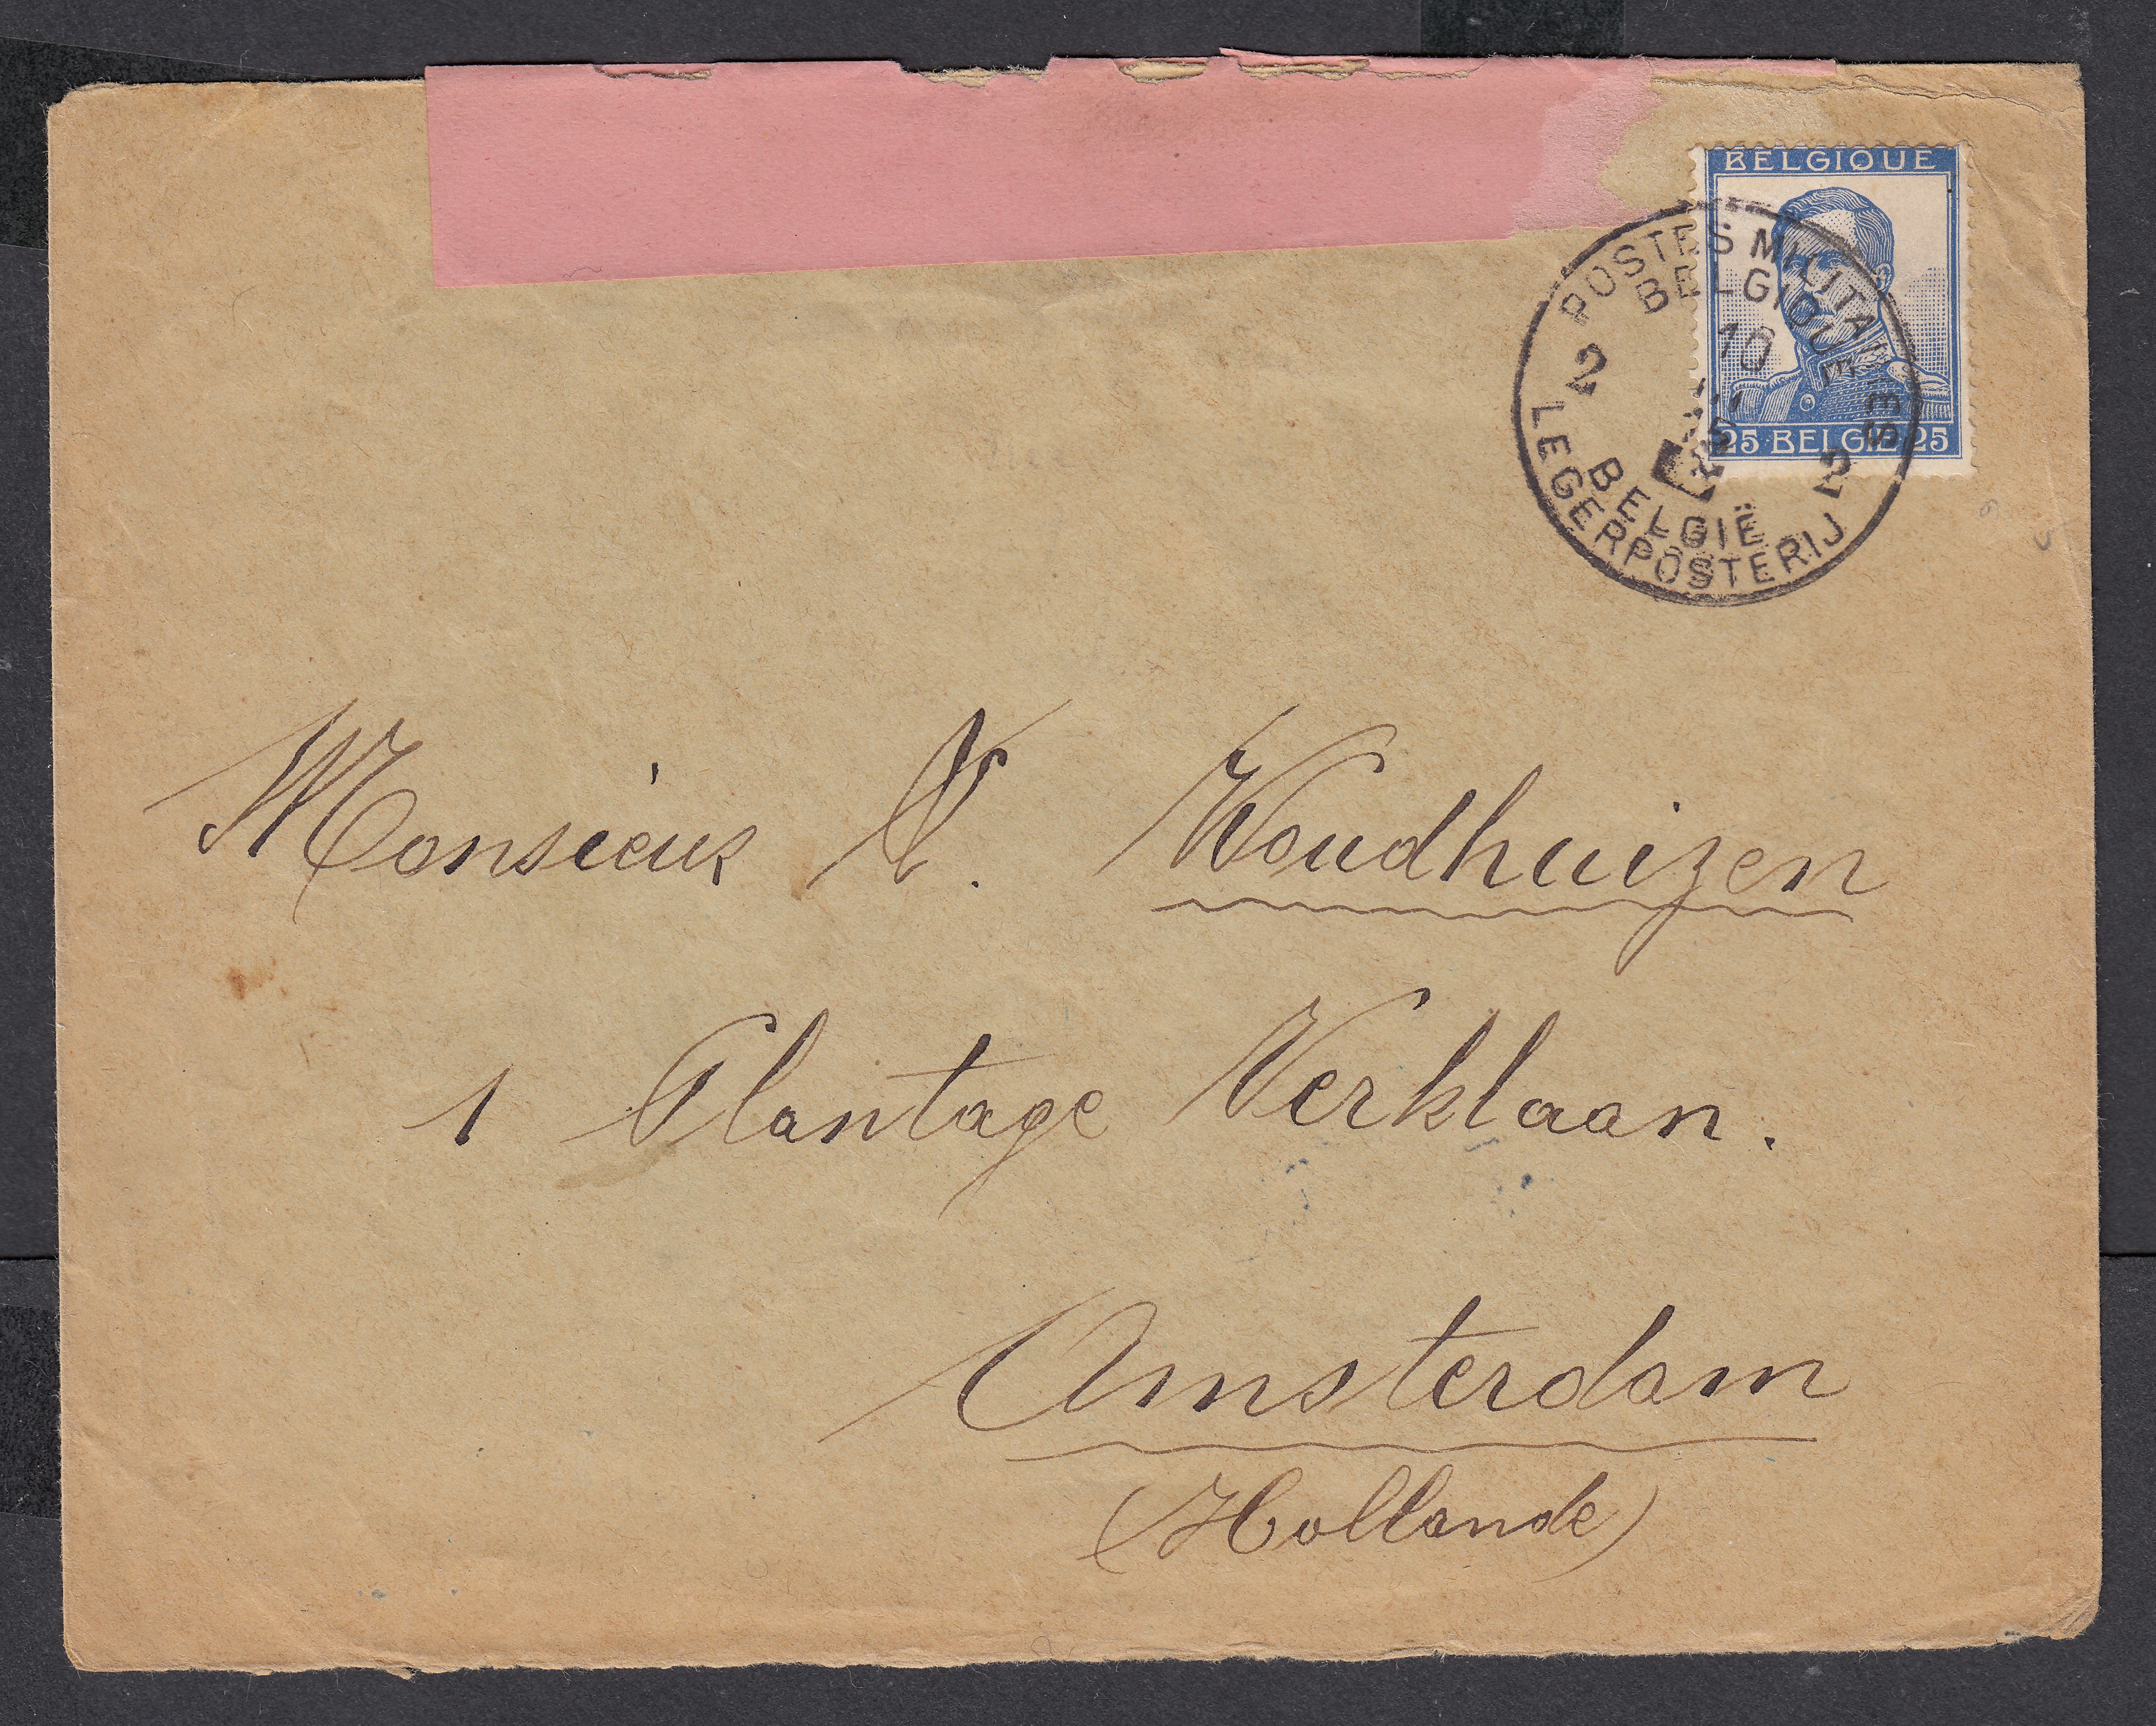 BELGIQUE
25 BELGIË 25
POSTES MILITAIRES
BELGIQUE
2 10 2
BELGIË
LEGERPOSTERIJ
Monsieur V. Woudhuizen
1 Plantage Kerklaan.
Amsterdam
(Hollande)